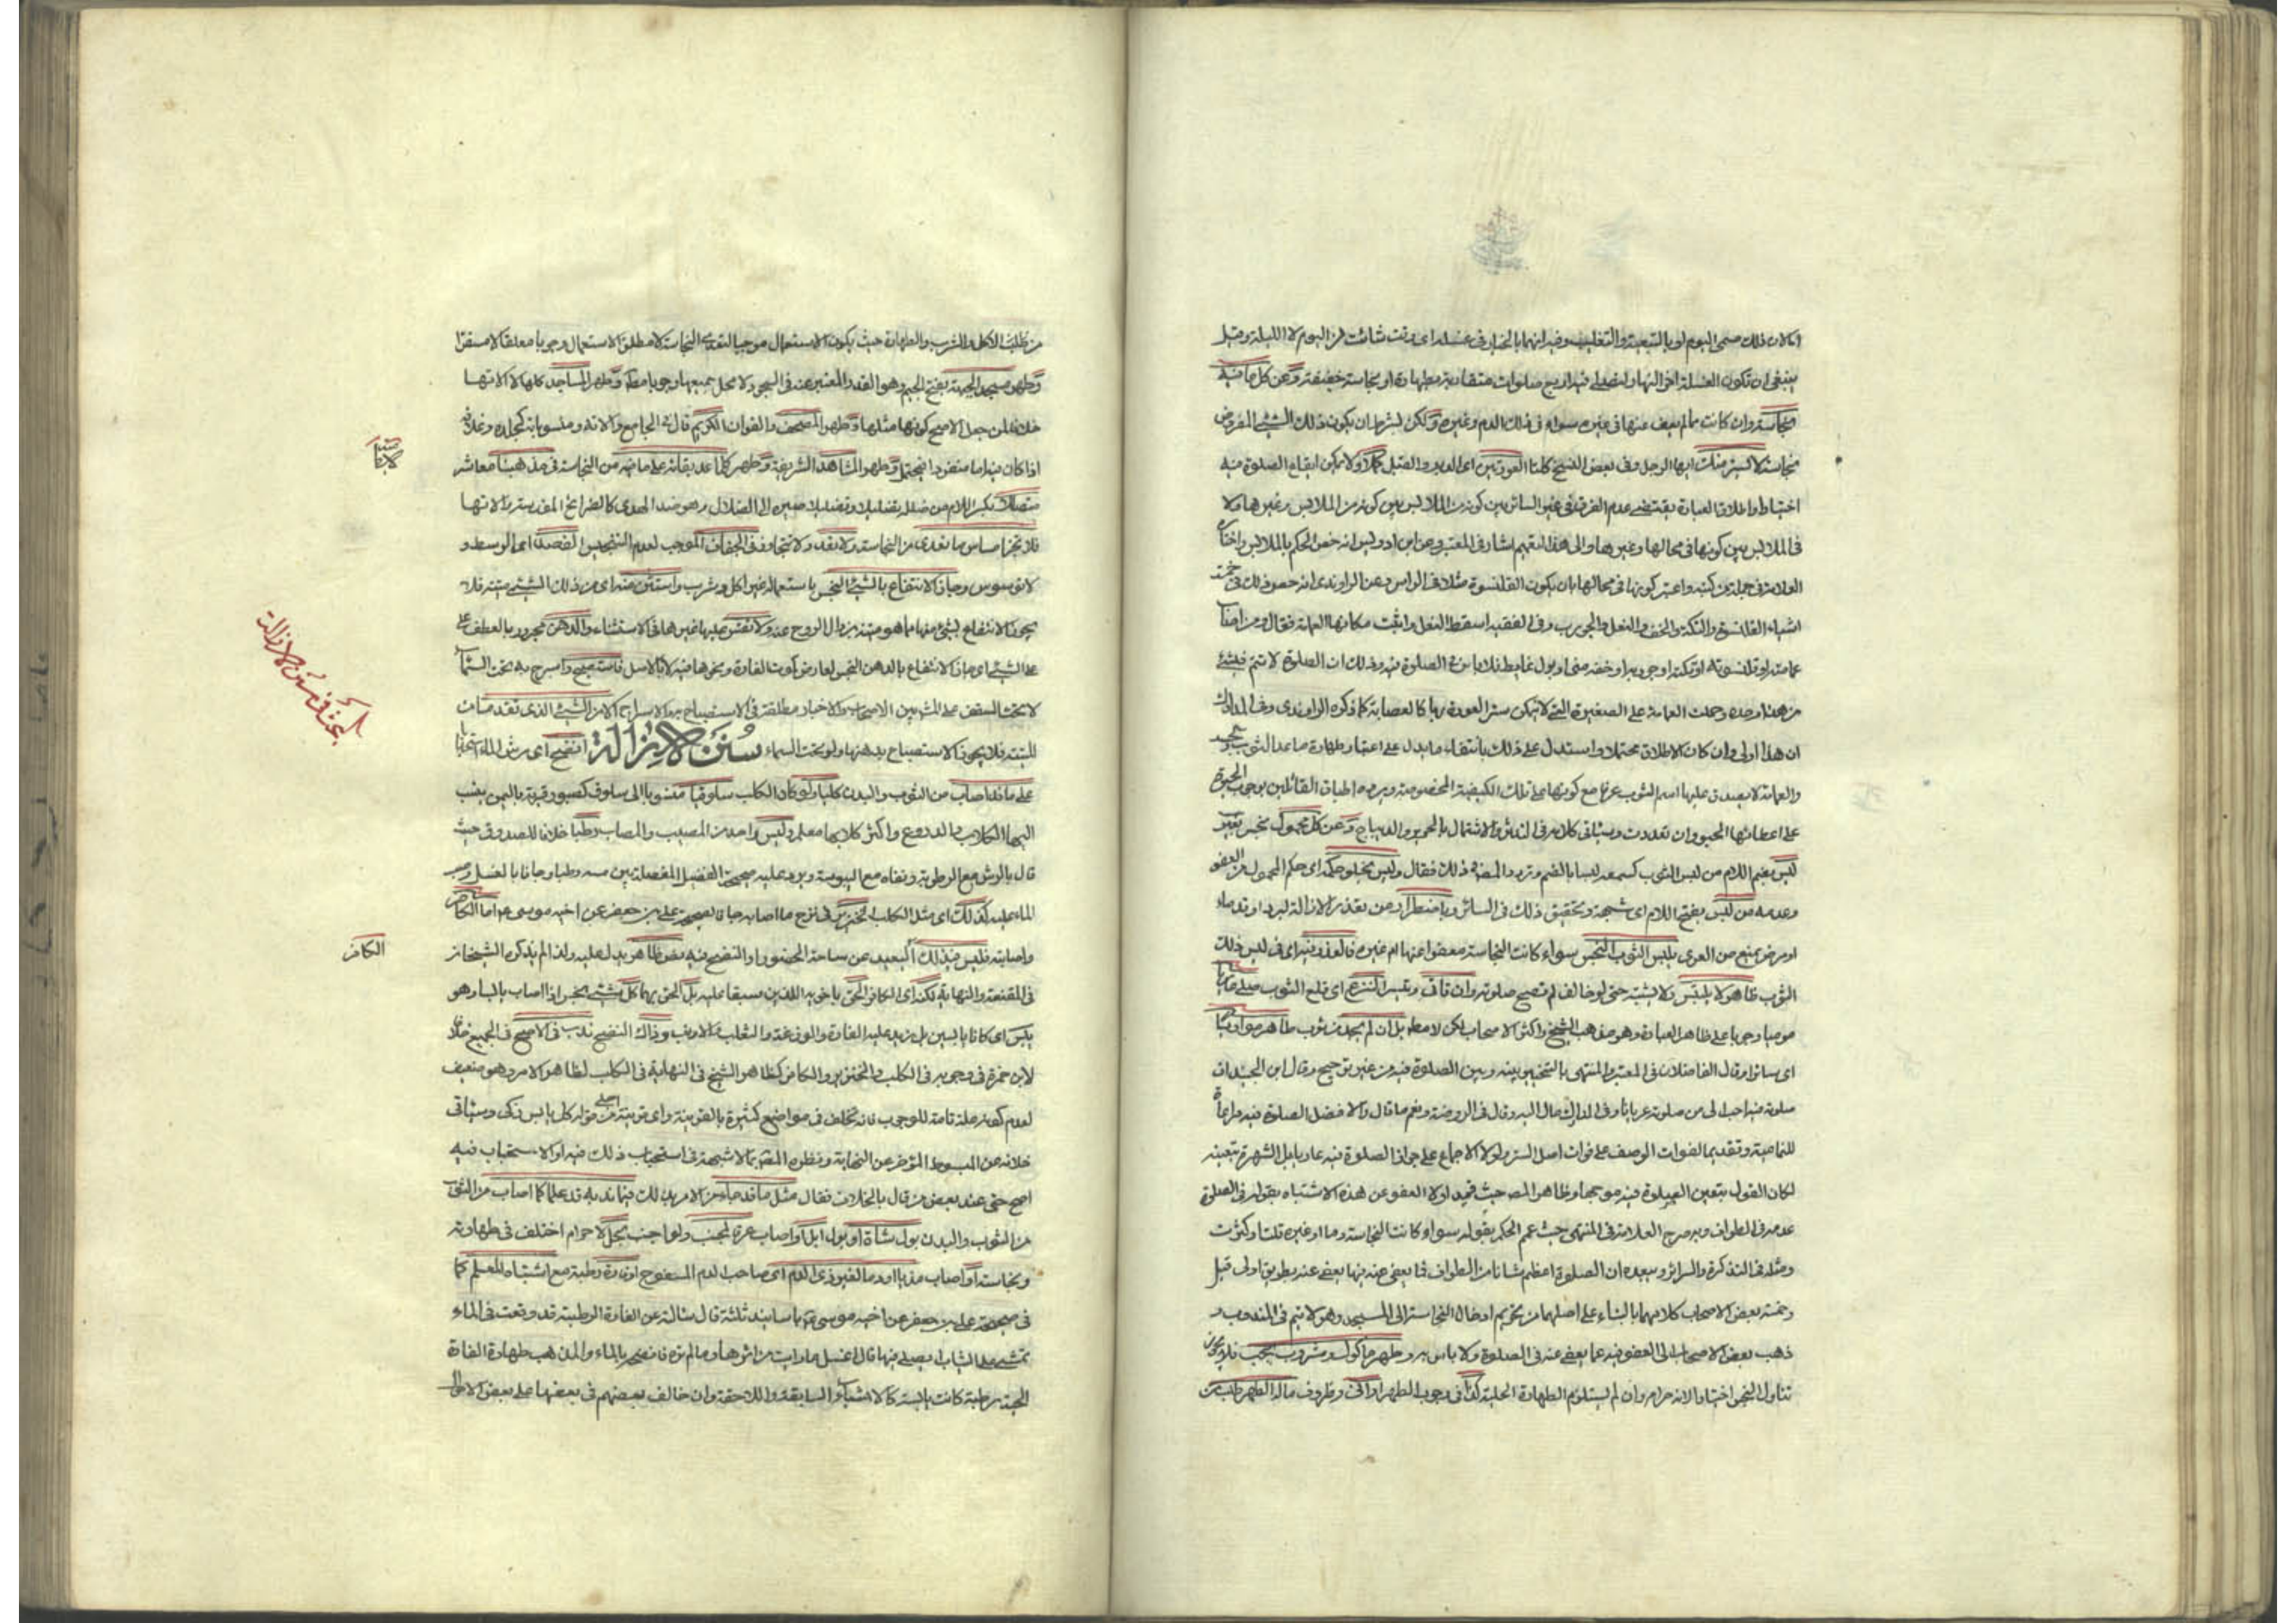 ينبغي ان تكون الغسلة اخر النهار ليصلي فيه اربع صلوات متقاربة بطهارة او نجاسة خفيفة وعن كل ما فيه
نجاسة وان كانت مما لم يعف عنها في غيره سواء في ذلك الدم وغيره ولكن بشرط ان يكون ذلك الشيء المفروض
نجاسته لا يستر منك ايها الرجل وفي بعض النسخ كلتا العورتين اي الدبر والقبل كملا ولا يمكن ايقاع الصلوة فيه
اختيارا واطلاق العبارة يقتضي عدم الفرق في غير الساتر بين كونه من الملابس وغيرها ولا
في الملابس بين كونها في محالها وغيرها والى هذا التعميم اشار في المعتبر وعن ابن ادريس انه خص الحكم بالملابس واختاره
العلامة في جملة من كتبه واعتبر كونها في محالها بان يكون القلنسوة مثلا في الراس وعن الراوندي انه حصر ذلك في خمسة
اشياء القلنسوة والتكة والخف والنعل والجورب وفي الفقيه اسقط النعل واثبت مكانها العمامة فقال ومن اصاب
عمامته او قلنسوته او تكته او جوربه او خفه مني او بول او غايط فلا باس في الصلوة فيه وذلك ان الصلوة لا تتم في شيء
من هذا وحده وحملت العمامة على الصغيرة التي لا يمكن ستر العورة بها كالعصابة كما ذكره الراوندي وفي المدارك
ان هذا اولى وان كان الاطلاق محتملا واستدل على ذلك بانتفاء ما يدل على اعتبار طهارة ما عدا الثوب والجسد
والعمامة لا يصدق عليها اسم الثوب عرفا مع كونها على تلك الكيفية المخصوصة ويرده اطباق القائلين بوجوب الحبوة
على اعطائها المحبو وان تعددت وسياتي كلام في التدثر والاشتمال بالحرير والديباج وعن كل محمول نجس بغير
لبس بضم اللام من لبس الثوب كسمعه لبسا بالضم وتردد المص في ذلك فقال وليس يخلو حكمه اي حكم المحمول من العفو
وعدمه من لبس بفتح اللام اي شبهة وتحقيق ذلك في الساتر وباضطرار ومن تعذر الازالة لبرد او فقد ماء
او مرض يمنع من العرى يلبس الثوب النجس سواء كانت النجاسة معفوا عنها ام غيره فالعذر فيه اي في لبس ذلك
الثوب ظاهر لا يلتبس ولا يشتبه حتى لو خالف لم تصح صلوته وان تاتي وتيسر النزع اي قلع الثوب صلى عاريا
موميا وجوبا على ظاهر العبارة وهو مذهب الشيخ واكثر الاصحاب لكن لا مطلقا بل ان لم يجد من ثوب طاهر مواريا
اي ساترا وقال الفاضلان في المعتبر والمنتهى بالتخيير بينه وبين الصلوة فيه من غير ترجيح وقال ابن الجنيد ان
صلوته فيه احب الي من صلوته عريانا وفي المدارك مال اليه وقال في الروضة ونعم ما قال والافضل الصلوة فيه مراعاة
للتمامية وتقديما لفوات الوصف على فوات اصل الستر ولولا الاجماع على جواز الصلوة فيه عاريا بل الشهرة بتعينه
لكان القول بتعين الصلوة فيه موجها وظاهر المص حيث قيد اولا العفو عن هذه الاشياء بقوله في الصلوة
عدمه في الطواف وبه صرح العلامة في المنتهى حيث عمم الحكم بقوله سواء كانت النجاسة دما او غيره قلت او كثرت
ومثله في التذكرة والسرائر ويبعده ان الصلوة اعظم شانا من الطواف فما يعفى عنه فيها يعفى عنه بطريق اولى قيل
وخصه بعض الاصحاب كلامهما بالبناء على اصلهما من تحريم ادخال النجاسة الى المسجد وهو لا يتم في المندوب و
ذهب بعض الاصحاب الى العفو فيه عما يعفى عنه في الصلوة ولا باس به وطهر ماكول ومشروب يجب فلا يجوز
تناول النجس اختيارا لانه حرام وان لم يستلزم الطهارة الحلية كذا في وجوب الطهر اواني وظروف ماله الطهر طلب من
من طلب الاكل والشرب والطهارة حيث يكون الاستعمال موجبا لتعدي النجاسة لا مطلق الاستعمال وجوبا معلقا لا مستقرا
وطهر مسجد الجبهة بفتح الجيم وهو القدر المعتبر عنه في السجود لا محل جميعها وجوبا مطلقا وطهر المساجد كلها لا آلاتها
خلافا لمن جعل الاصح كونها مثلها وطهر المصحف والقران الكريم قال في الجامع وآلاته ومنسوباته كجلده وغلافه
اذا كان فيه اما منفردا فيحتمل وطهر المشاهد الشريفة وطهر كلما عد بقائه على ما فيه من النجاسة في مذهبنا معاشر
مضللا بكسر اللام من ضلله تضليلا وتضليلا صيره الى الضلال وهو ضد الهدى كالضرائح المقدسة وآلاتها
فلا تجز مساس ما تعدى من النجاسة ولا تعد ولا تتجاوز في الجفاف الموجب لعدم التنجيس القصد اي الوسط و
لا توسوس وجاز الانتفاع بالشيء النجس باستعماله غير اكل وشرب واستثن منه اي من ذلك الشيء ميتة فلا
يجوز الانتفاع بشيء منها مما هو ميتة بزوال الروح عنه ولا تقس عليها غيرها في الاستثناء والدهن مجرور بالعطف على
على الشيء اي جاز الانتفاع بالدهن النجس لعارض كموت الفارة ونحوها فيه لا بالاصل فاستصبح واسرج به تحت السماء
لا تحت السقف على المشهور بين الاصحاب والاخبار مطلقة في الاستصباح به والاسراج الا من الشيء الذي تقدم مات
الميتة فلا يجوز الاستصباح بدهنها ولو تحت السماء سنن الازالة انضح اي رش الماء استحبابا
على ما قد اصاب من الثوب والبدن كلبا ولو كان الكلب سلوقيا منسوبا الى سلوق كصبور قرية باليمن ينسب
اليها الكلاب والدروع واكثر كلابها معلم وليس واحد من المصيب والمصاب رطبا خلافا للصدوق حيث
قال بالرش مع الرطوبة ونفاه مع اليبوسة ويرد عليه صحيحة الفضل المفصلة بين مسه رطبا وجافا بالغسل وصب
الماء عليه كذلك اي مثل الكلب الخنزير في نزح ما اصابه جافا لصحيحة علي بن جعفر عن اخيه موسى ع اما الكافر
واصابته فليس فيه ذلك البعيد عن ساحة الحضور او النضح فيه نص ظاهر يدل عليه ولذا لم يذكره الشيخان
في المقنعة والنهاية لكن اي الكافر الحق باخويه اللذين سبقا عليه بل الحق بهما كل شيء نجس اذا اصاب باليبا وهو
يبس اي كانا يابسين بل زيد عليه الفارة والوزغة والثعلب والارنب وذاك النضح ندب في الاصح في الجميع خلافا
لابن حمزة في وجوبه في الكلب والخنزير والكافر كظاهر الشيخ في النهاية في الكلب لظاهر الامر وهو ضعيف
لعدم كونه علة تامة للوجوب فانه تخلف في مواضع كثيرة بالقرينة واي قرينة اجلى من قوله كل يابس ذكي وسياتي
خلافه عن المبسوط المؤخر عن النهاية ونظره المقنع بما لا شبهة في استحباب ذلك فيه او الاستحباب فيه
اصح حتى عند بعض من قال بالخلاف فقال مثل ما قد جاء من الامر بذلك فيما ندبه قد علما كما اصاب من الثوب
من الثوب والبدن بول شاة او بول ابل او اصاب عرق لمجنب ولو اجنب بحل لا حرام اختلف في طهارته
ونجاسته او اصاب مذيا او دما لغير ذي الدم اي صاحب الدم المسفوح او فارة رطبة مع اشتباه للمعلم كما
في صحيحة علي بن جعفر عن اخيه موسى ع باسانيد ثلثة قال سالته عن الفارة الرطبة قد وقعت في الماء
تمشي على الثياب ايصلي فيها قال اغسل ما رايت من اثرها وما لم تره فانضحه بالماء والمذهب طهارة الفارة
الحية رطبة كانت يابسة كالاشياء السابقة واللاحقة وان خالف بعضهم في بعضها على بعض الاحوال
بحث في سنن الازالة
الكافر